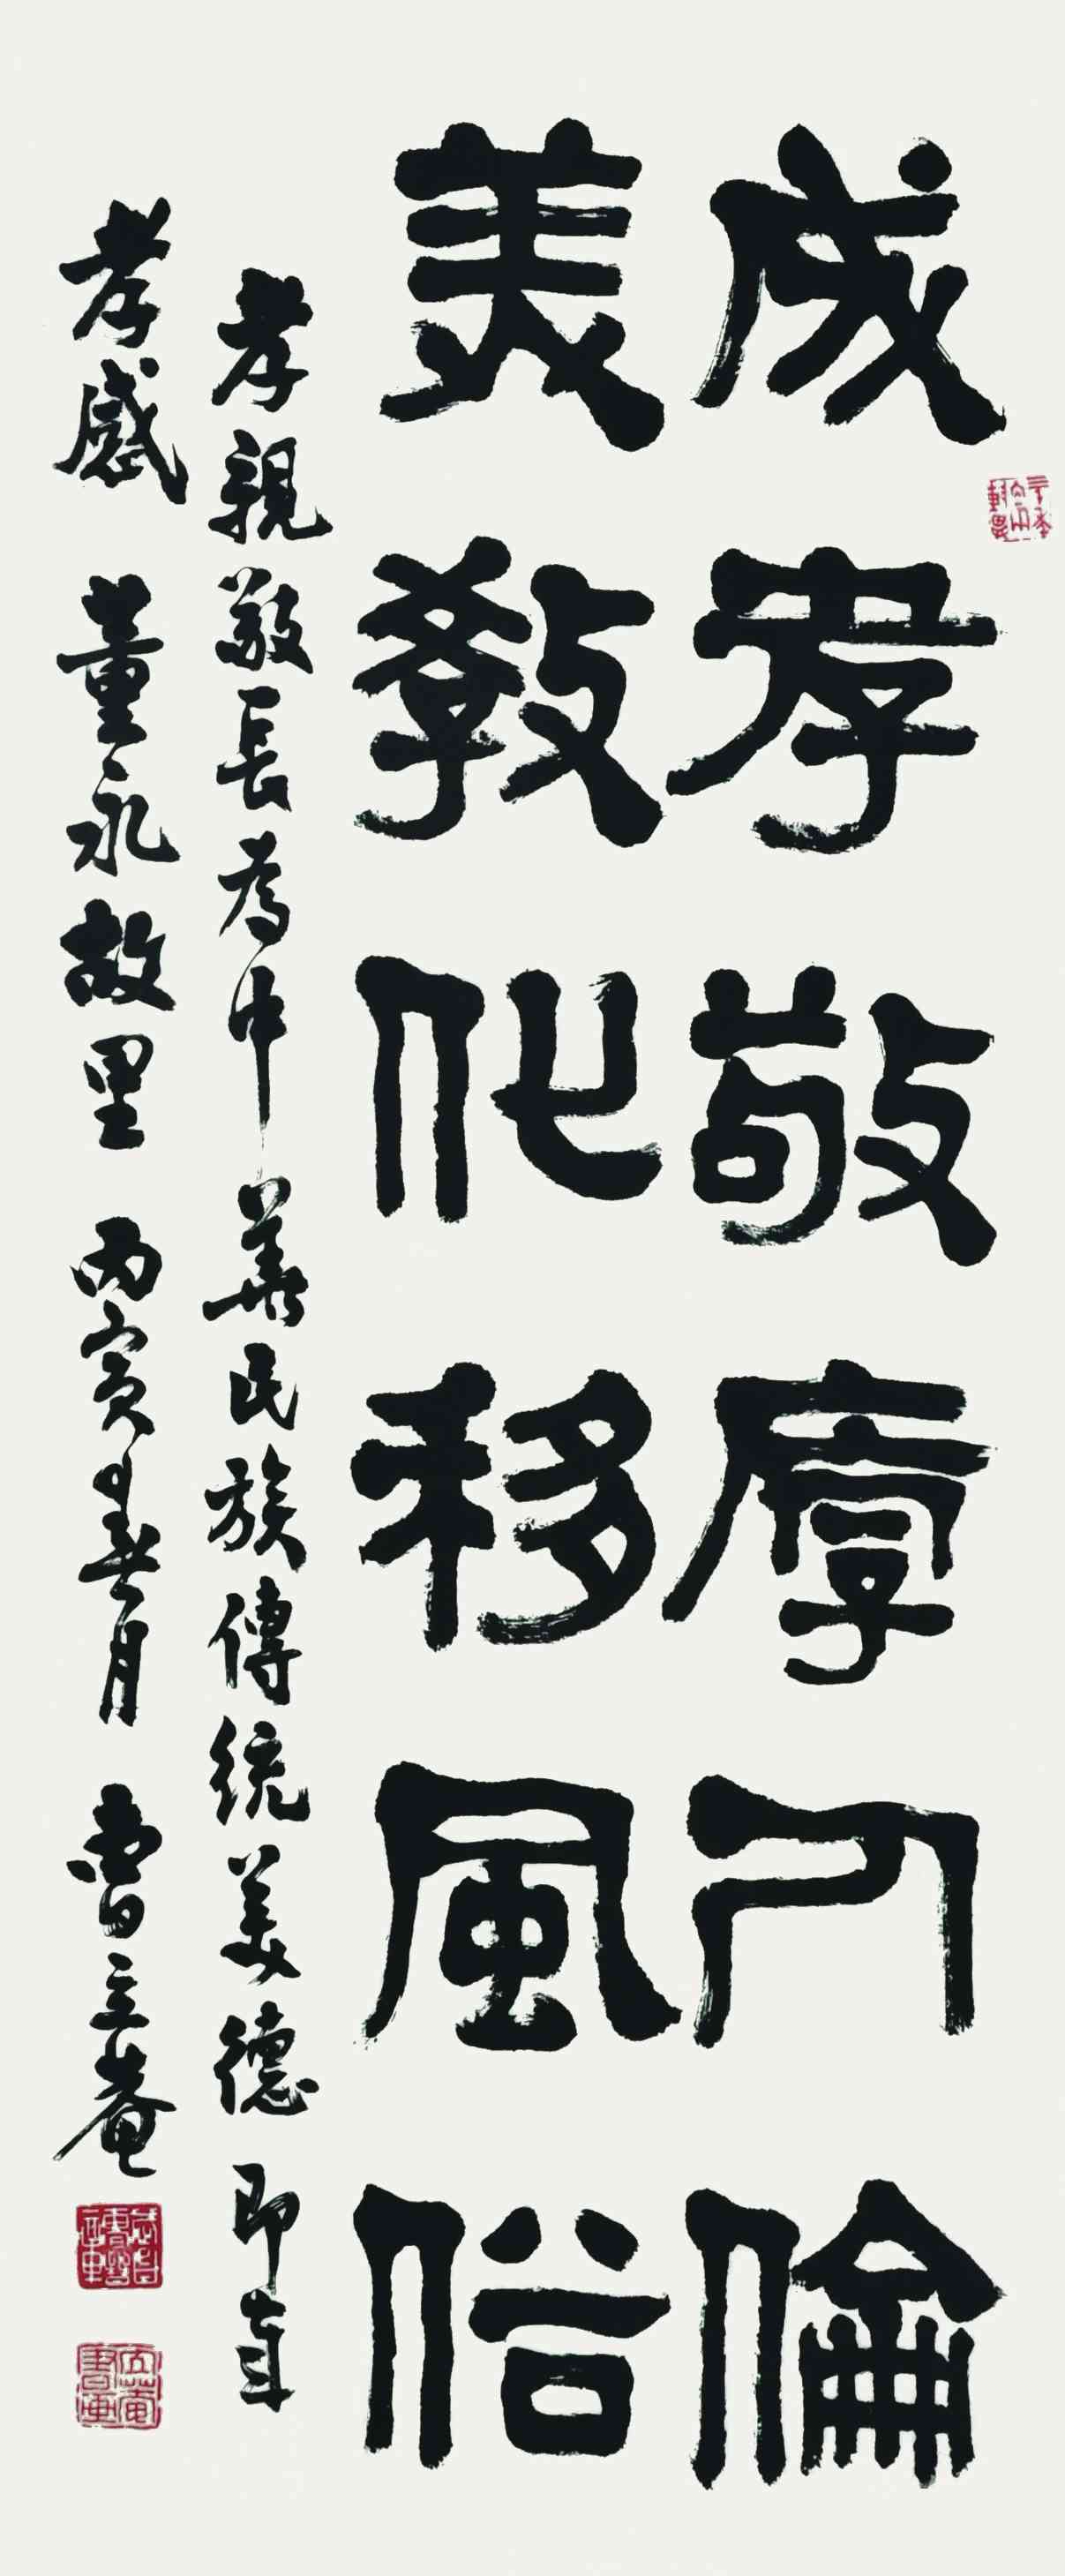 成孝敬厚人倫
美教化移風俗
孝親敬長為中華民族傳統美德即奉
孝感 董永故里 丙寅春月 曹立庵